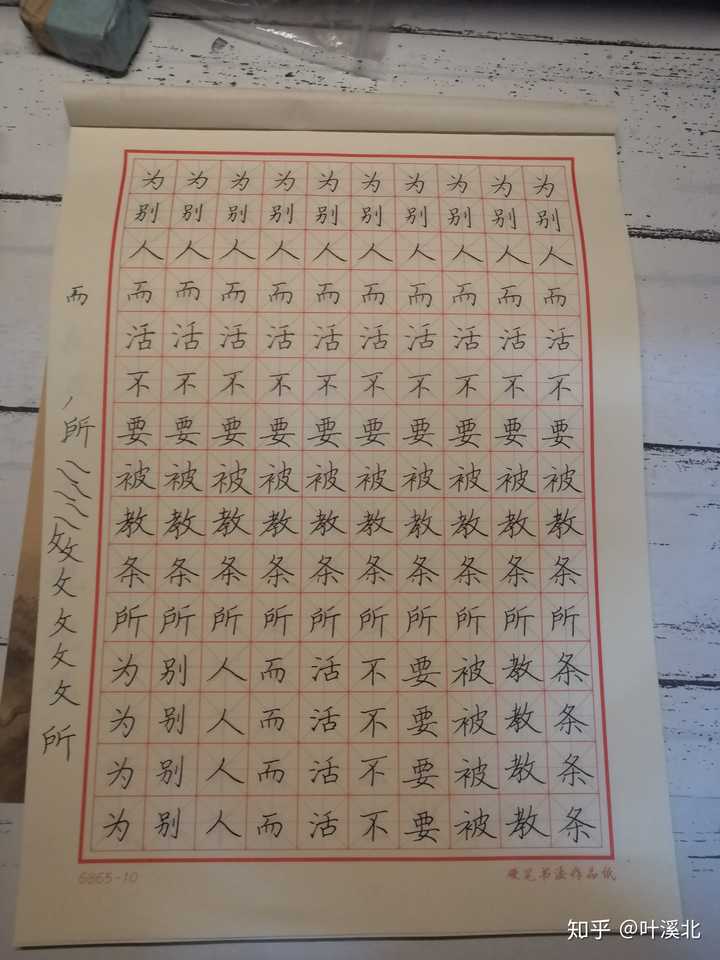 为为为为为为为为为为
别别别别别别别别别别
人人人人人人人人人人
而
而而而而而而而而而而
活活活活活活活活活活
不不不不不不不不不不
所
要要要要要要要要要要
被被被被被被被被被被
教教教教教教教教教教
攵攵
条条条条条条条条条条
攵
所所所所所所所所所所
攵
为别人而活不要被教条
攵
攵
为别人而活不要被教条
所
为别人而活不要被教条
为别人而活不要被教条
6865-10
硬笔书法作品纸
知乎 @叶溪北